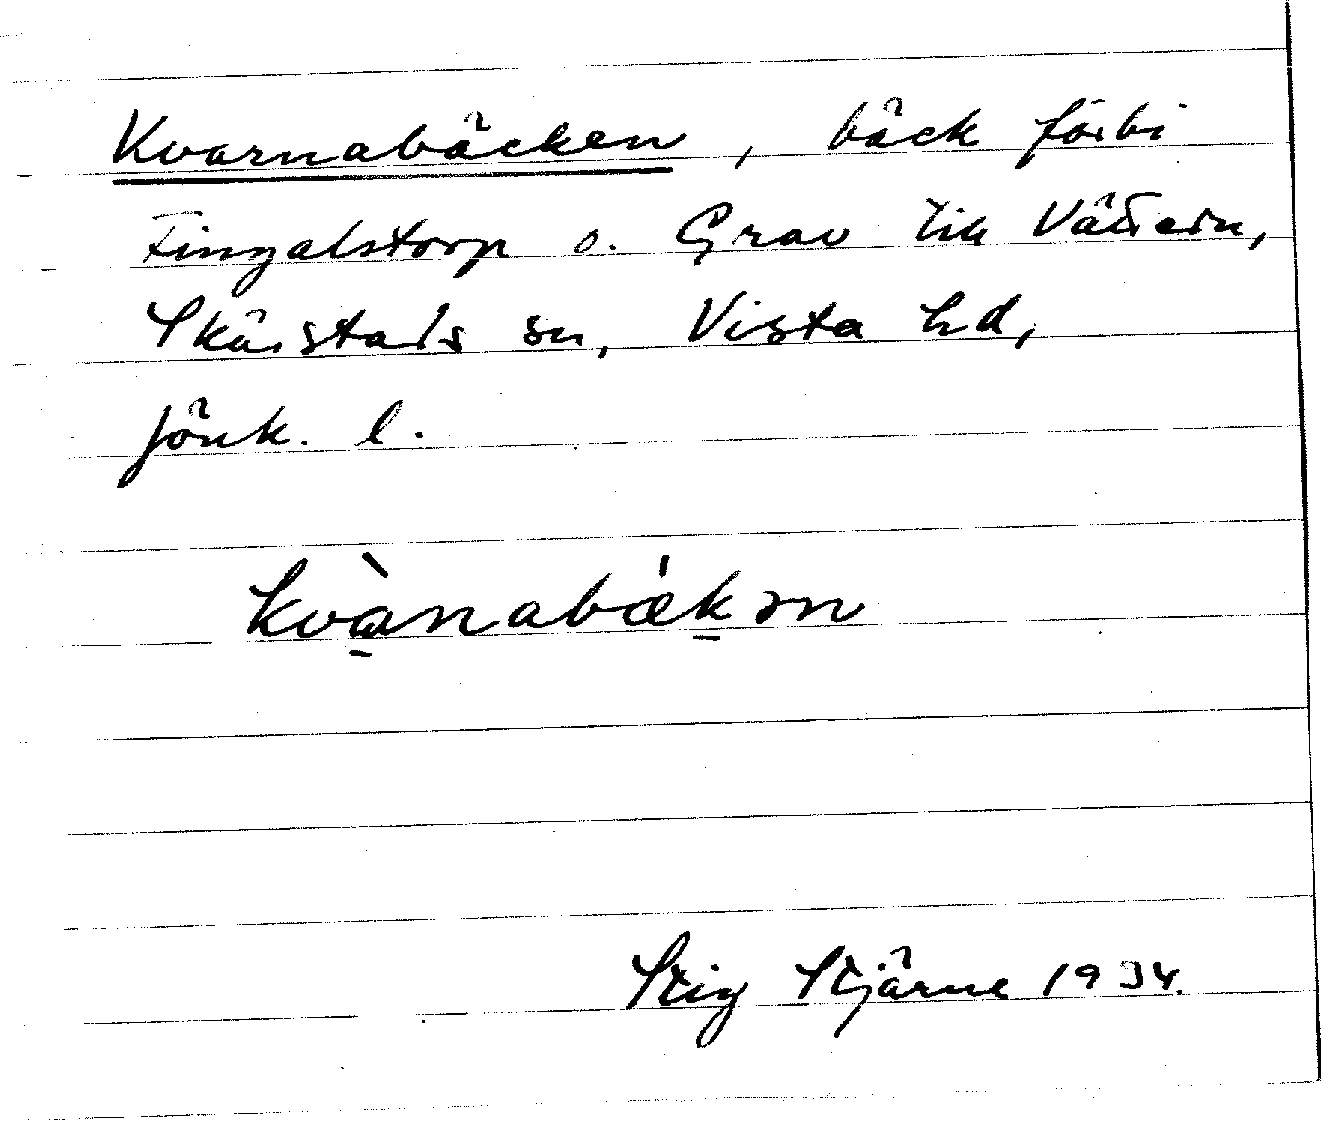 Kvarnabäcken, bäck förbi
Fingalstorp o. Grav till Vättern,
Skärstads sn, Vista hd,
Jönk. l.
kvànabǽkən
Stig Stjärne 1934.